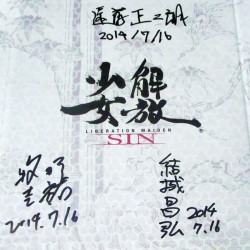 遠藤正二朗
2014/7/16
解放
少女
®
LIBERATION MAIDEN
SIN
牧野
圭祐
2014.7.16
結城
昌弘
2014
7.16